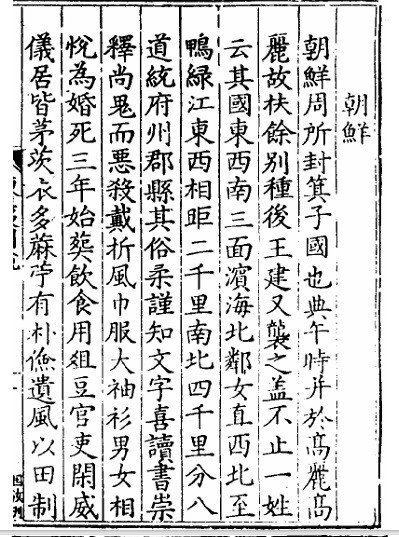 朝鮮
朝鮮周所封箕子國也典午時并於高麗高
麗故扶餘別種後王建又襲之盖不止一姓
云其國東西南三面濱海北鄰女直西北至
鴨緑江東西相距二千里南北四千里分八
道統府州郡縣其俗柔謹知文字喜讀書崇
釋尚鬼而悪殺戴折風巾服大袖衫男女相
悅為婚死三年始葬飲食用俎豆官吏閑威
儀居皆茅茨衣多蔴苧有朴儉遺風以田制